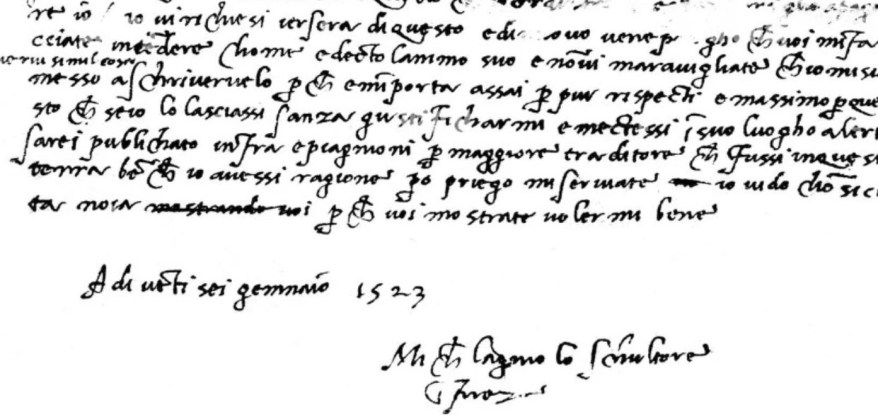 re io io vi richiesi versera di questo e di novo ve ne p gho ch voi mi fa
cciate intedere chome e decto lanimo suo e no vi maravigliate ch io mi sia
scriverui simil cosa
messo a schrivervelo p ch e mi porta assai p piu rispecti e massimo p que
sto ch se io lo lasciassi sanza gustifichar mi e mectessi i suo luogho altri
sarei publichato infra e piagnioni p maggiore traditore ch fussi in quesi
terra be ch io avessi ragione po priego mi serviate io vi do
ta noia mostrando voi p ch voi mostrate voler mi bene
A di veti sei gennaio 1523
Mi ch lagnio lo schultore